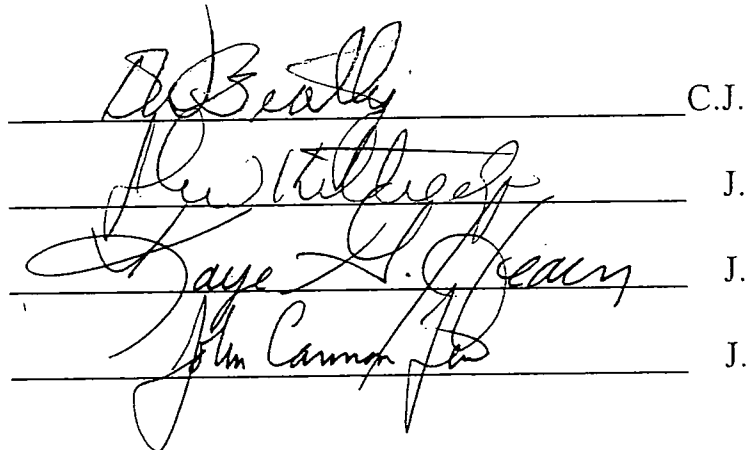 Beatty C.J.
J.
Kaye G. Hearn J.
John Cannon Few J.